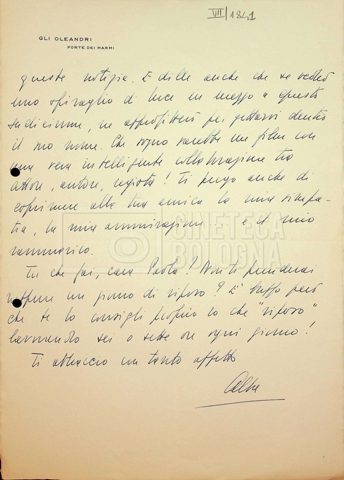 VII/1841
GLI OLEANDRI
FORTE DEI MARMI
queste notizie. E dille anche che se vedrò
uno spiraglio di luce in mezzo a questo
sudiciume, ne approfitterò per gettarvi dentro
il suo nome. Che sogno sarebbe un film con
una vera intelligente collaborazione tra
attore, autore, regista! Ti prego anche di
esprimere alla tua amica la mia simpa-
tia, la mia ammirazione e il mio
rammarico.
Tu che fai, cara Paola? Non ti prendi
neppure un giorno di riposo? È buffo però
che te lo consigli proprio io che "riposo"
lavorando sei o sette ore ogni giorno!
Ti abbraccio con tanto affetto
Alba
CINETECA
BOLOGNA